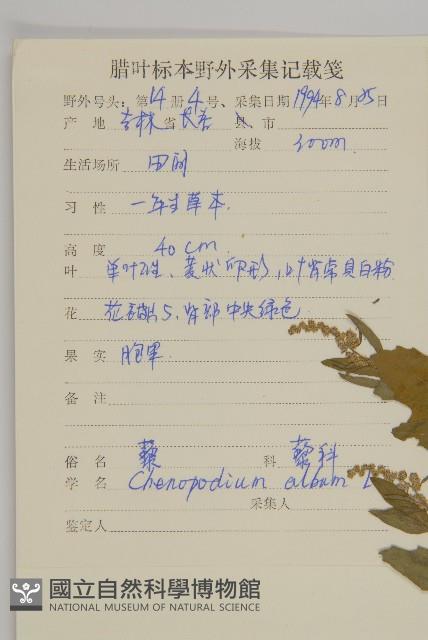 腊叶标本野外采集记载笺
野外号头:第14册4号、采集日期1994年8月25日
产 地 吉林省长春县、市
海拔 300m
生活场所 田间
习 性 一年生草本.
高 度 40 cm
叶 单叶互生、菱状卵形, 叶背常具白粉
花 花被片5,背部中央绿色
果 实 胞果.
备 注
俗 名 藜 科 藜科
学 名 Chenopodium album L
采集人
鉴定人
國立自然科學博物館
NATIONAL MUSEUM OF NATURAL SCIENCE